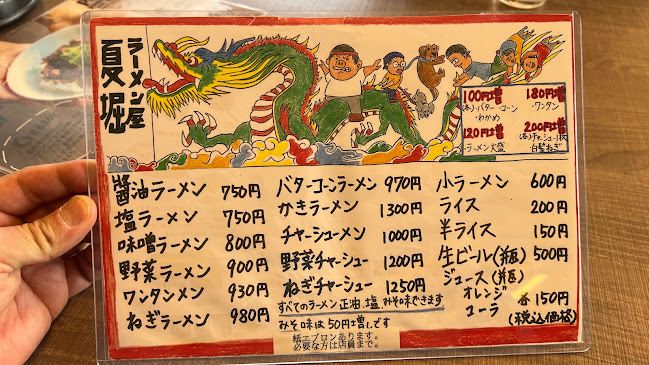 ラーメン屋
夏堀
100円増
(各)・バター・コーン
・わかめ
180円増
・ワンタン
120円増
・ラーメン大盛
200円増
(各)チャーシュー1枚
白髪ねぎ
醬油ラーメン 750円
塩ラーメン 750円
味噌ラーメン 800円
野菜ラーメン 900円
ワンタンメン 930円
ねぎラーメン 980円
バターコーンラーメン 970円
かきラーメン 1300円
チャーシューメン 1000円
野菜チャーシュー 1200円
ねぎチャーシュー 1250円
すべてのラーメン正油、塩みそ味できます
みそ味は50円増しです
小ラーメン 600円
ライス 200円
半ライス 150円
生ビール(瓶) 500円
ジュース(瓶)
オレンジ
コーラ
各150円
(税込価格)
紙エプロンあります。
必要な方は店員まで。